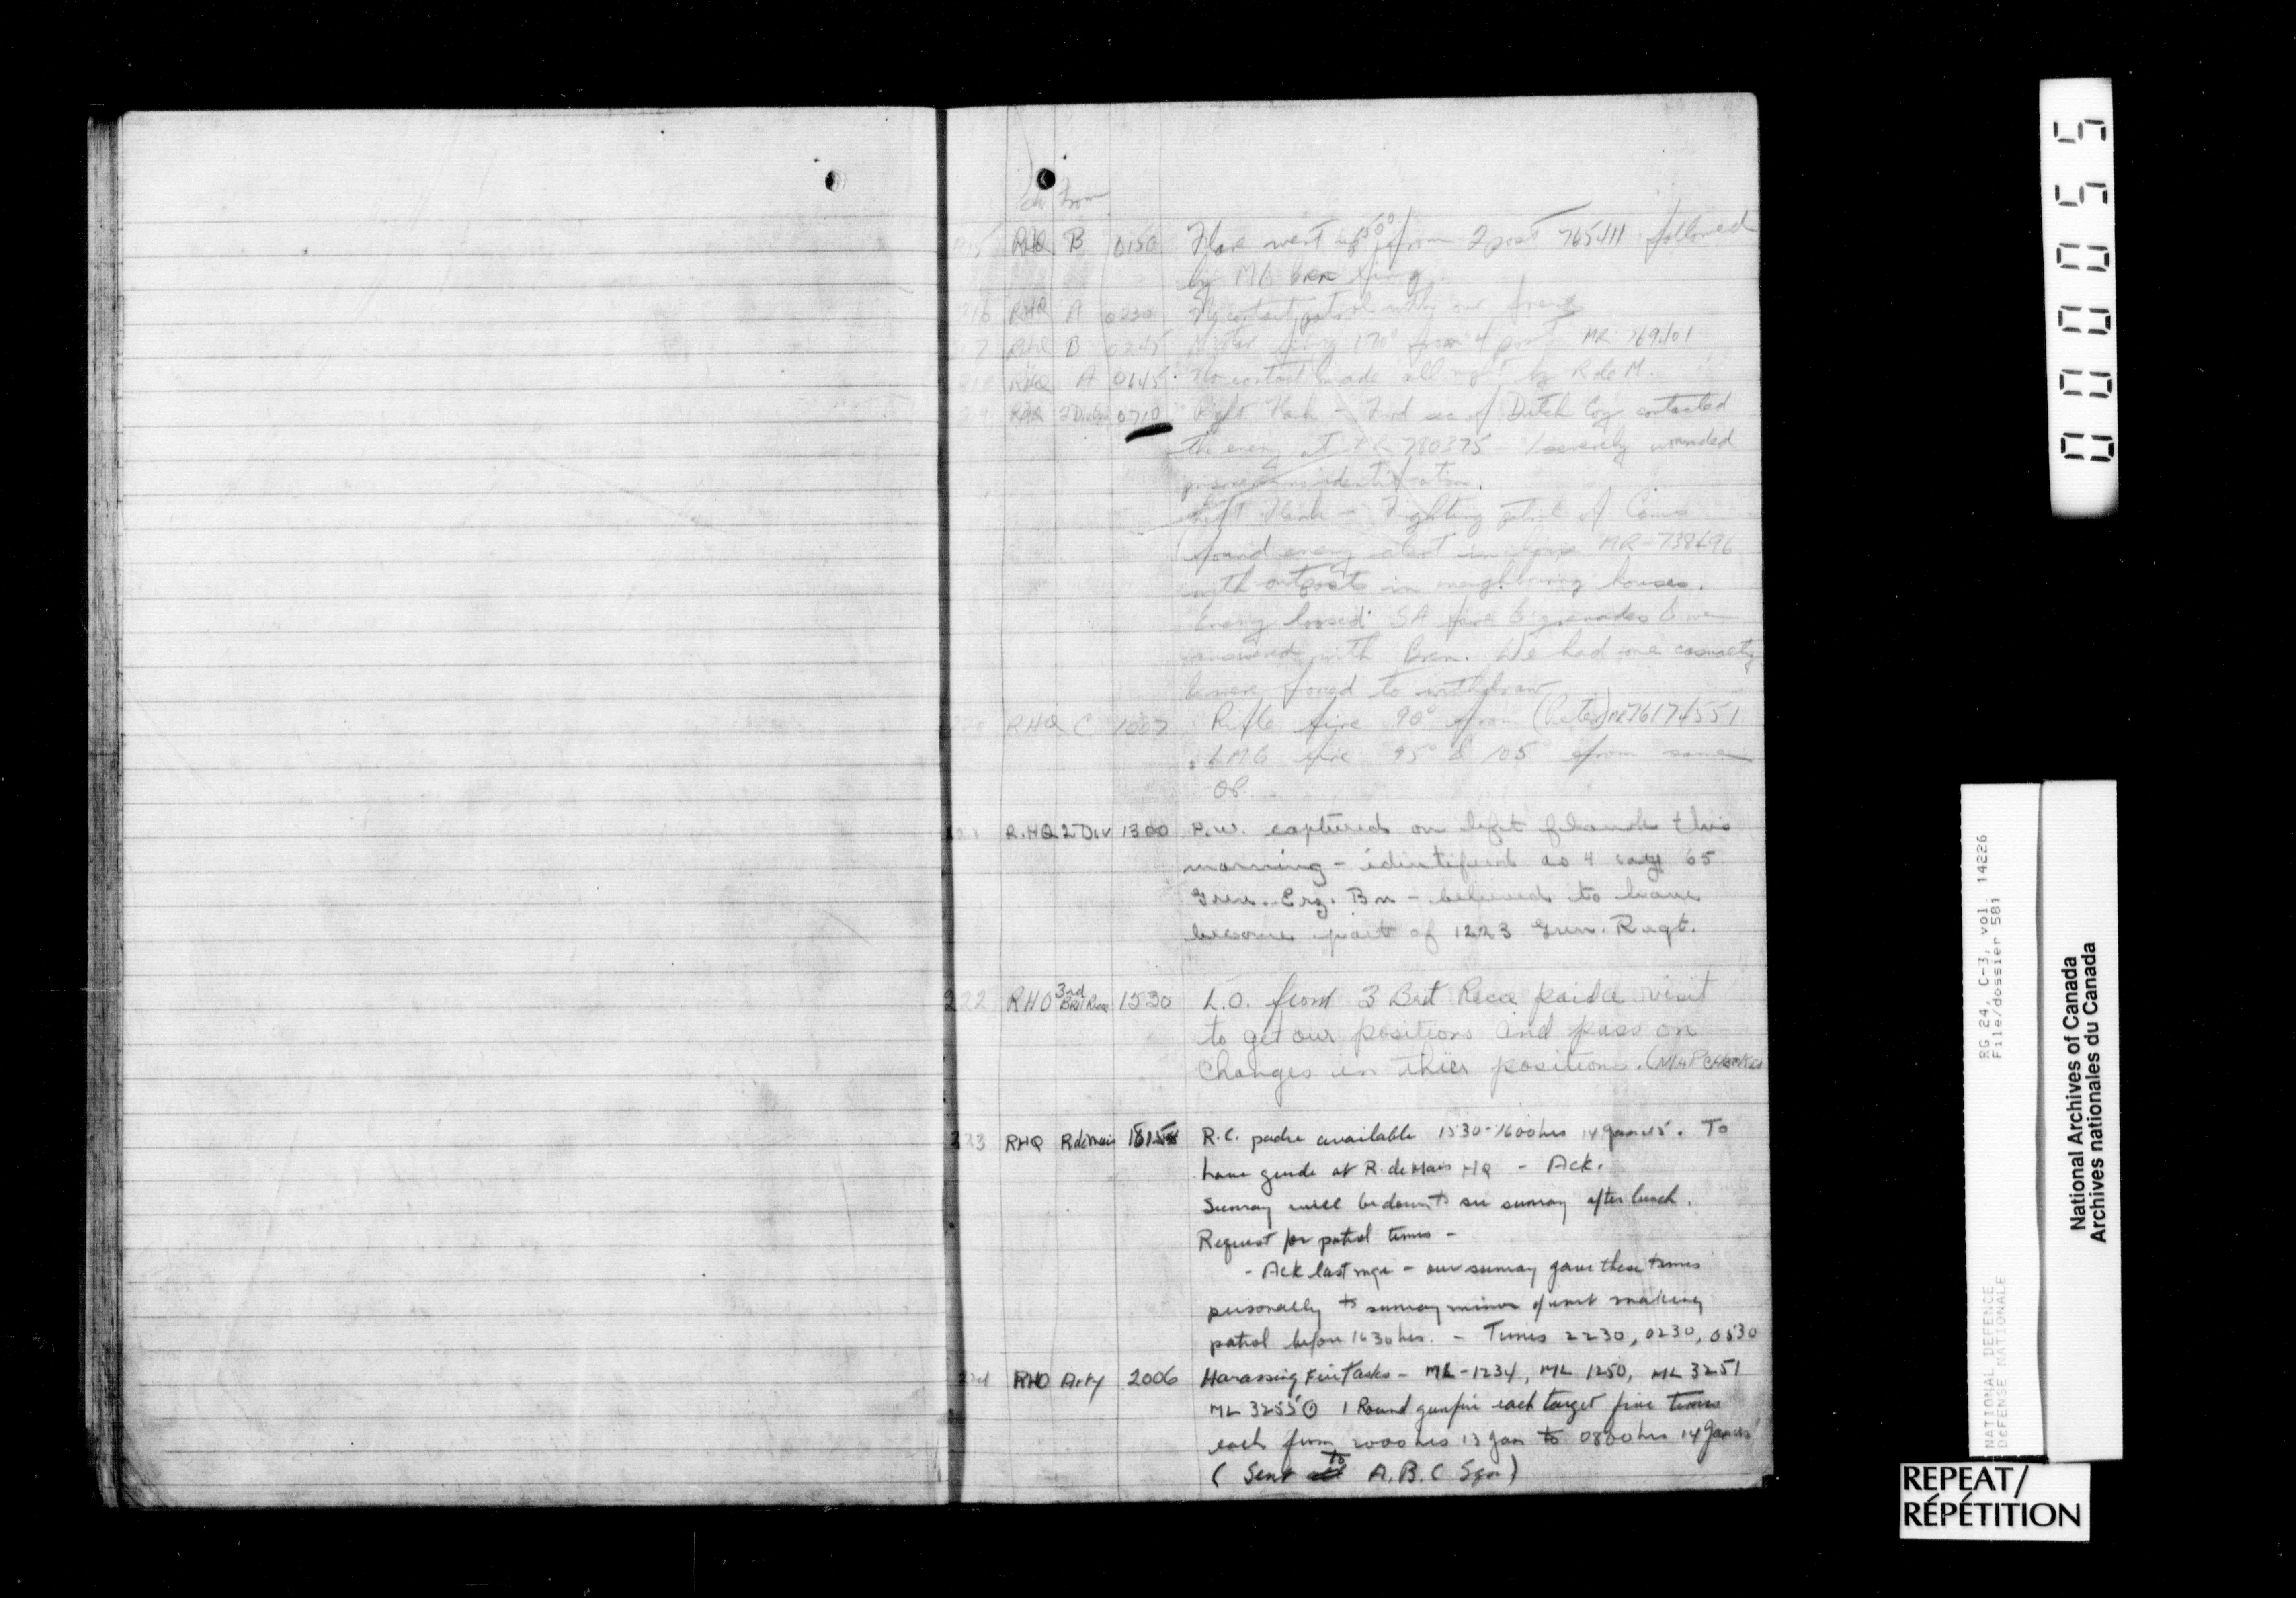 To From
215 RHQ B 0150 Flare went up 50° from 2 post 765411 followed
by MG Bren firing.
216 RHQ A 0230 No contact patrol
217 RHQ B 0245 Mortar firing 170° from 4 post MR 769401
218 RHQ A 0645 No contact made all night by R de M.
RHQ 0710 Right Flank - Find sec of Dutch Coy contacted
the enemy at MR 780375 - 1 severely wounded
prisoner no identification.
Left Flank - Fighting patrol of Cams
found enemy alert in house MR-738496
with outposts in neighbouring houses.
Enemy loosed SA fire & grenades & we
answered with Bren. We had one casualty
& were forced to withdraw
220 RHQ C 1007 Rifle fire 90° from (Peter) MR 76174551
LMG fire 95° & 105° from same
OP.
221 R.HQ 2 Div 1300 P.W. captured on left flank this
morning - identified as 4 coy 65
Gren. Erg. Bn - believed to have
become part of 1223 Gren. Regt.
222 RHQ 3rd Brit Recce 1530 L.O. from 3 Brit Recce paid a visit
to get our positions and pass on
Changes in thier positions.
223 RHQ R de Mais 1815 R.C. padre available 1530-1600 hrs 14 Jan 45. To
have guide at R. de Mais HQ - Ack.
Sunray will be down to see sunray after lunch.
Request for patrol times -
- Ack last mge - our sunray gave these times
personally to sunray minor of unit making
patrol before 1630 hrs. - Times 2230, 0230, 0530
224 RHQ Arty 2006 Harassing Fire Tasks - ML-1234, ML 1250, ML 3251
ML 3255 ⊙ 1 Round gunfire each target five times
each from 2000 hrs 13 Jan to 0800 hrs 14 Jan 45
(Sent to A.B.C Sqn)
000055
RG 24, C-3, vol. 14226
File/dossier 581
NATIONAL DEFENCE
DÉFENSE NATIONALE
National Archives of Canada
Archives nationales du Canada
REPEAT/
RÉPÉTITION